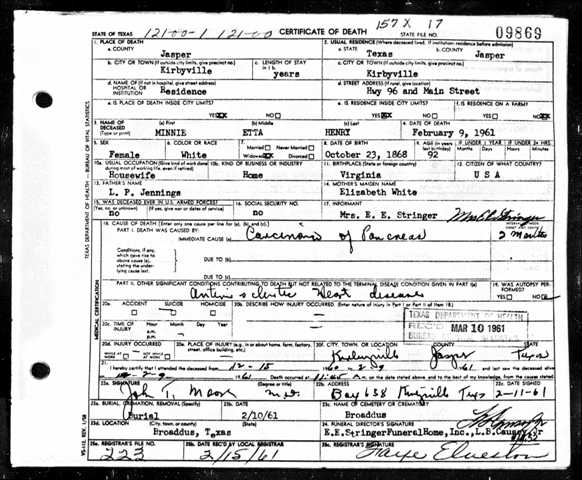 157 X 17
STATE OF TEXAS 12100-1 121-00 CERTIFICATE OF DEATH STATE FILE NO. 09869
1. PLACE OF DEATH 2. USUAL RESIDENCE (Where deceased lived. If institution: residence before admission)
a. COUNTY Jasper a. STATE Texas b. COUNTY Jasper
b. CITY OR TOWN (If outside city limits, give precinct no.) Kirbyville c. LENGTH OF STAY in 1 b. years c. CITY OR TOWN (If outside city limits, give precinct no.) Kirbyville
d. NAME OF (If not in hospital, give street address) HOSPITAL OR INSTITUTION Residence d. STREET ADDRESS (If rural, give location) Hwy 96 and Main Street
e. IS PLACE OF DEATH INSIDE CITY LIMITS? YES XX NO e. IS RESIDENCE INSIDE CITY LIMITS? YES XX NO f. IS RESIDENCE ON A FARM? YES NO XX
3. NAME OF DECEASED (Type or print) (a) First MINNIE (b) Middle ETTA (c) Last HENRY 4. DATE OF DEATH February 9, 1961
5. SEX Female 6. COLOR OR RACE White 7. Married Never Married Widowed XX Divorced 8. DATE OF BIRTH October 23, 1868 9. AGE (In years last birthday) 92 IF UNDER 1 YEAR Months Days IF UNDER 24 HRS. Hours Min.
10a. USUAL OCCUPATION (Give kind of work done during most of working life, even if retired) Housewife 10b. KIND OF BUSINESS OR INDUSTRY Home 11. BIRTHPLACE (State or foreign country) Virginia 12. CITIZEN OF WHAT COUNTRY? U S A
13. FATHER'S NAME L. P. Jennings 14. MOTHER'S MAIDEN NAME Elizabeth White
15. WAS DECEASED EVER IN U.S. ARMED FORCES? (Yes, no, or unknown) (If yes, give war or dates of service) no 16. SOCIAL SECURITY NO. no 17. INFORMANT Mrs. E. E. Stringer
18. CAUSE OF DEATH (Enter only one cause per line for (a), (b), and (c).)
PART I. DEATH WAS CAUSED BY: IMMEDIATE CAUSE (a) Carcinoma of Pancreas 2 Months
Conditions, if any, which gave rise to above cause (a), stating the underlying cause last. DUE TO (b)
DUE TO (c)
PART II. OTHER SIGNIFICANT CONDITIONS CONTRIBUTING TO DEATH BUT NOT RELATED TO THE TERMINAL DISEASE CONDITION GIVEN IN PART I(a) 19. WAS AUTOPSY PERFORMED? YES NO
Heart disease
20a. ACCIDENT SUICIDE HOMICIDE 20b. DESCRIBE HOW INJURY OCCURRED. (Enter nature of injury in Part I or Part II of item 18.)
20c. TIME OF INJURY Hour Month Day Year a.m. p.m.
TEXAS DEPARTMENT OF HEALTH
REC'D MAR 10 1961
20d. INJURY OCCURRED WHILE AT WORK NOT WHILE AT WORK 20e. PLACE OF INJURY (e.g., in or about home, farm, factory, street, office building, etc.) 20f. CITY, TOWN, OR LOCATION Kirbyville COUNTY Jasper STATE Texas
21. I hereby certify that I attended the deceased from 12-15 1960 2-9 61
2-9 1961 Death occurred at 11:45 on the date stated above; and to the best of my knowledge, from the causes stated.
22a. SIGNATURE John T. Moore (Degree or title) M.D. 22b. ADDRESS Box 638 Kirbyville Tex 22c. DATE SIGNED 2-11-61
23a. BURIAL, CREMATION, REMOVAL (Specify) Burial 23b. DATE 2/10/61 23c. NAME OF CEMETERY OR CREMATORY Broaddus
23d. LOCATION (City, town, or county) (State) Broaddus, Texas 24. FUNERAL DIRECTOR'S SIGNATURE E.E.Stringer Funeral Home, Inc., L.B. Causey, Jr
25a. REGISTRAR'S FILE NO. 223 25b. DATE REC'D BY LOCAL REGISTRAR 2/15/61 25c. REGISTRAR'S SIGNATURE
TEXAS DEPARTMENT OF HEALTH — BUREAU OF VITAL STATISTICS
MEDICAL CERTIFICATION